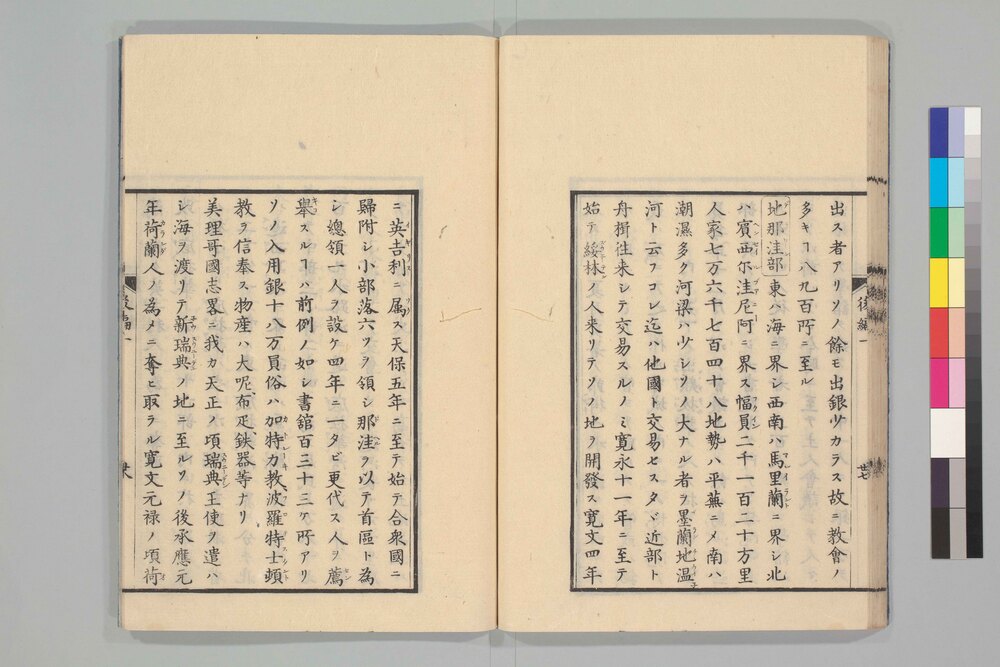 出ス者アリソノ餘モ出銀少カラス故ニ教會ノ
多キヿ八九百所ニ至ル
地那洼部東ハ海ニ界シ西南ハ馬里蘭ニ界シ北
ハ賓西尓洼尼阿ニ界ス幅員二千一百二十方里
人家七万六千七百四十八地勢ハ平蕪ニメ南ハ
潮濕多ク河梁ハ少シソノ大ナル者ヲ墨蘭地温
河ト云フコレ迄ハ他國ト交易セスタヾ近部ト
舟揖徃来シテ交易スルノミ寛永十一年ニ至テ
始テ綏林ノ人来リテソノ地ヲ開發ス寛文四年
後編一
廿七
ニ英吉利ニ属ス天保五年ニ至テ始テ合衆國ニ
歸附シ小部落六ツヲ領シ那洼ヲ以テ首區ト為
シ總領一人ヲ設ケ四年ニ一タビ更代ス人ヲ薦
舉スルヿハ前例ノ如シ書舘百三十三ケ所アリ
ソノ入用銀十八万員俗ハ加特力教波羅特士頓
教ヲ信奉ス物産ハ大呢布疋鉄器等ナリ
美理哥國志畧ニ我カ天正ノ項瑞典王使ヲ遣ハ
シ海ヲ渡リテ新瑞典ノ地ニ至ルソノ後承應元
年荷蘭人ノ為メニ奪ヒ取ラル寛文元禄ノ項荷
後編一